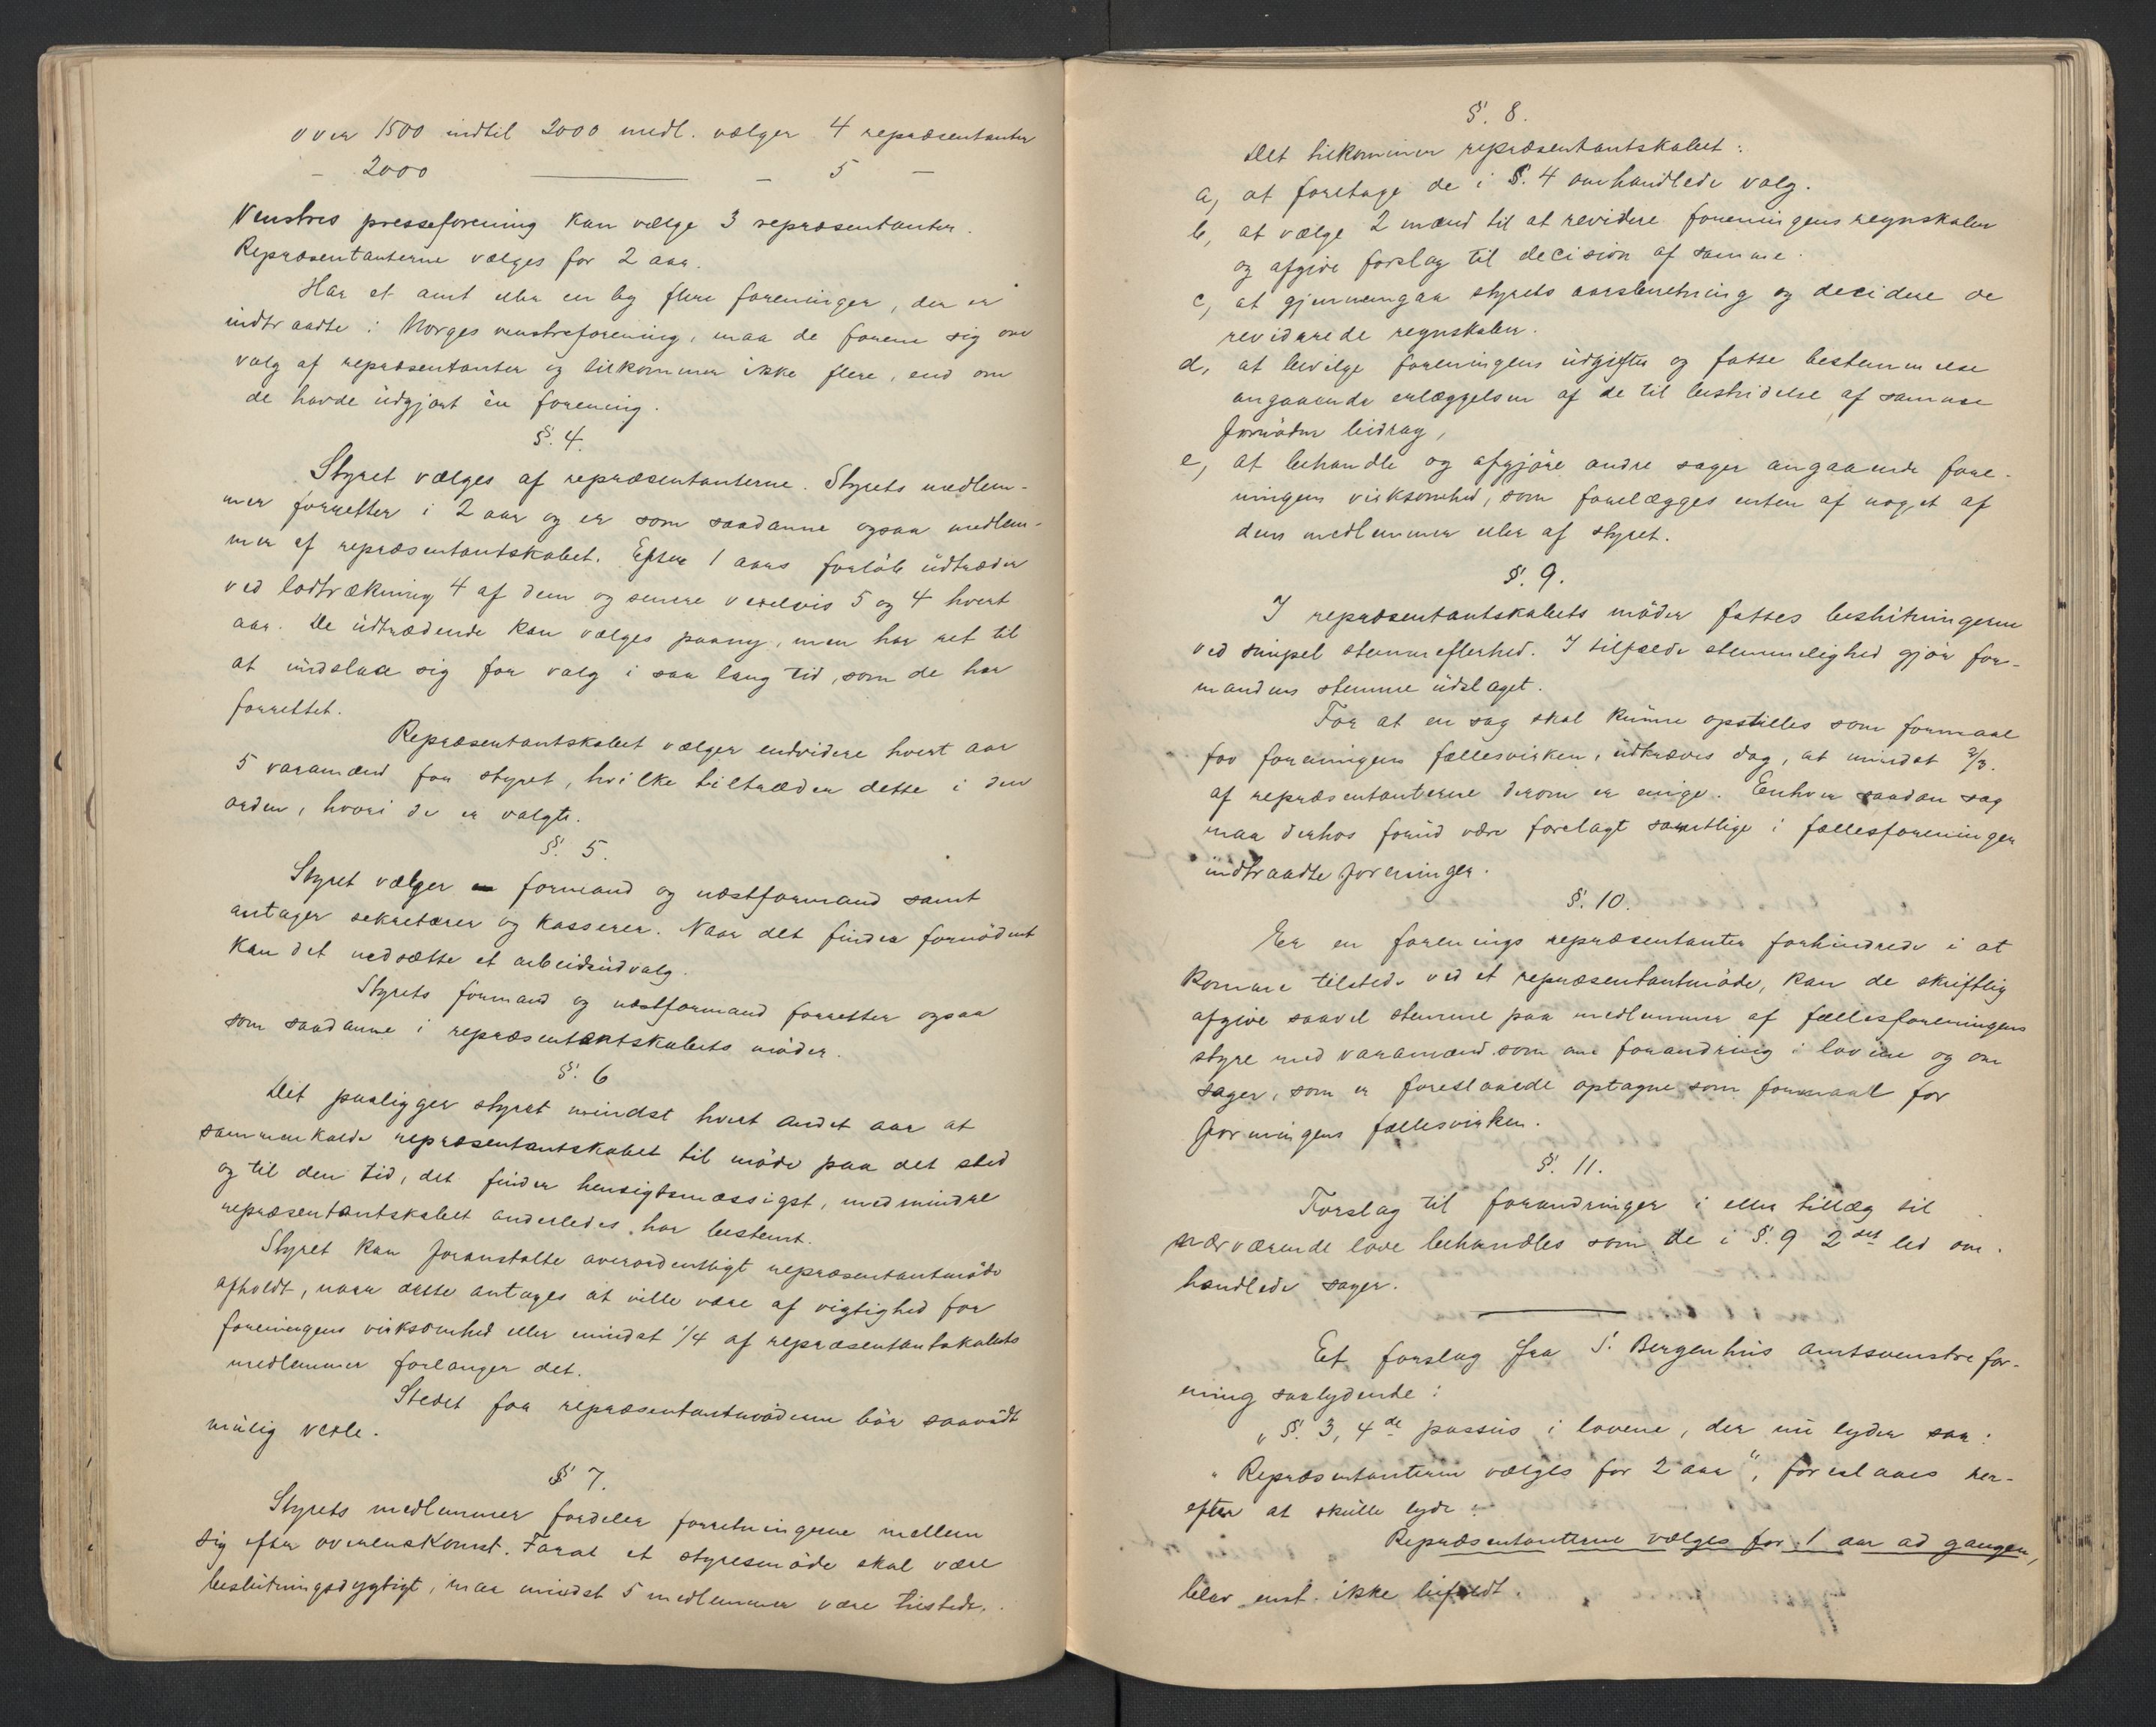 over 1500 indtil 2000 medl. vælger 4 repræsentanter
– 2000 ——— – 5 –
Venstres presseforening kan vælge 3 repræsentanter.
Repræsentanterne vælges for 2 aar.
Har et amt eller en by flere foreninger, der er
indtraadte i Norges venstreforening, maa de forene sig om
valg af repræsentanter og tilkommer ikke flere, end om
de havde udgjort én forening.
§. 4.
Styret vælges af repræsentanterne. Styrets medlem-
mer forretter i 2 aar og er som saadanne ogsaa medlem-
mer af repræsentantskabet. Efter 1 aars forløb udtræder
ved lodtrækning 4 af dem og senere vexelvis 5 og 4 hvert
aar. De udtrædende kan vælges paany, men har ret til
at undslaa sig for valg i saa lang tid, som de har
forrettet.
Repræsentantskabet vælger endvidere hvert aar
5 varamænd for styret, hvilke tiltræder dette i den
orden, hvori de er valgte.
§. 5.
Styret vælger formand og næstformand samt
antager sekretærer og kasserer. Naar det finder fornødent
kan det nedsætte et arbeidsudvalg.
Styrets formand og næstformand forretter ogsaa
som saadanne i repræsentantskabets møder.
§. 6
Det paaligger styret mindst hvert andet aar at
sammenkalde repræsentantskabet til møde paa det sted
og til den tid, det finder hensigtsmæssigst, medmindre
repræsentantskabet anderledes har bestemt.
Styret kan foranstalte overordentligt repræsentantmøde
afholdt, naar dette antages at ville være af vigtighed for
foreningens virksomhed eller mindst 1/4 af repræsentantskabets
medlemmer forlanger det.
Stedet for repræsentantmøderne bør saavidt
mulig vexle.
§ 7.
Styrets medlemmer fordeler forretningerne mellem
sig efter overenskomst. Forat et styresmøde skal være
beslutningsdygtigt, maa mindst 5 medlemmer være tilstede.
§. 8.
Det tilkommer repræsentantskabet:
a, at foretage de i §. 4 omhandlede valg.
b, at vælge 2 mænd til at revidere foreningens regnskaber
og afgive forslag til decision af samme.
c, at gjennemgaa styrets aarsberetning og decidere de
reviderede regnskaber.
d, at bevilge foreningens udgifter og fatte bestemmelse
angaaende erlæggelsen af de til bestridelse af samme
fornødne bidrag,
e, at behandle og afgjøre andre sager angaaende fore-
ningens virksomhed, som forelægges enten af noget af
dens medlemmer eller af styret.
§. 9.
I repræsentantskabets møder fattes beslutningerne
ved simpel stemmeflerhed. I tilfælde stemmelighed gjør for-
mandens stemme udslaget.
For at en sag skal kunne opstilles som formaal
for foreningens fællesvirken, udkræves dog, at mindst 2/3.
af repræsentanterne derom er enige. Enhver saadan sag
maa derhos forud være forelagt samtlige i fællesforeningen
indtraadte foreninger.
§. 10.
Er en forenings repræsentanter forhindrede i at
komme tilstede ved et repræsentantmøde, kan de skriftlig
afgive saavel stemme paa medlemmer af fællesforeningens
styre med varamænd som om forandring i lovene og om
sager, som er foreslaaede optagne som formaal for
foreningens fællesvirken.
§. 11.
Forslag til forandringer i eller tillæg til
nærværende love behandles som de i §. 9 2det led om-
handlede sager.
Et forslag fra S. Bergenhus amtsvenstrefor-
ening saalydende:
„§. 3, 4de passus i lovene, der nu lyder saa:
„Repræsentanterne vælges for 2 aar“, foreslaaes her-
efter at skulle lyde:
Repræsentanterne vælges for 1 aar ad gangen,
blev enst. ikke bifaldt.